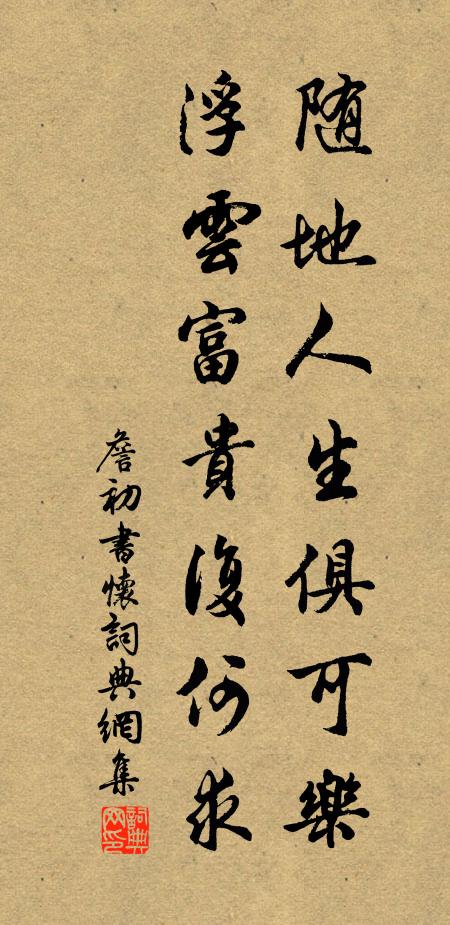 随地人生俱可樂
浮雲富貴復何求
詹初書懷詞典網集
詞典網印